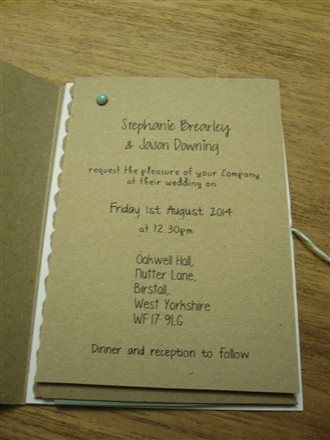 Stephanie Brearley
& Jason Downing
request the pleasure of your Company
at their wedding on
Friday 1st August 2014
at 12.30pm
Oakwell Hall,
Nutter Lane,
Birstall,
West Yorkshire
WF17 9LG
Dinner and reception to follow